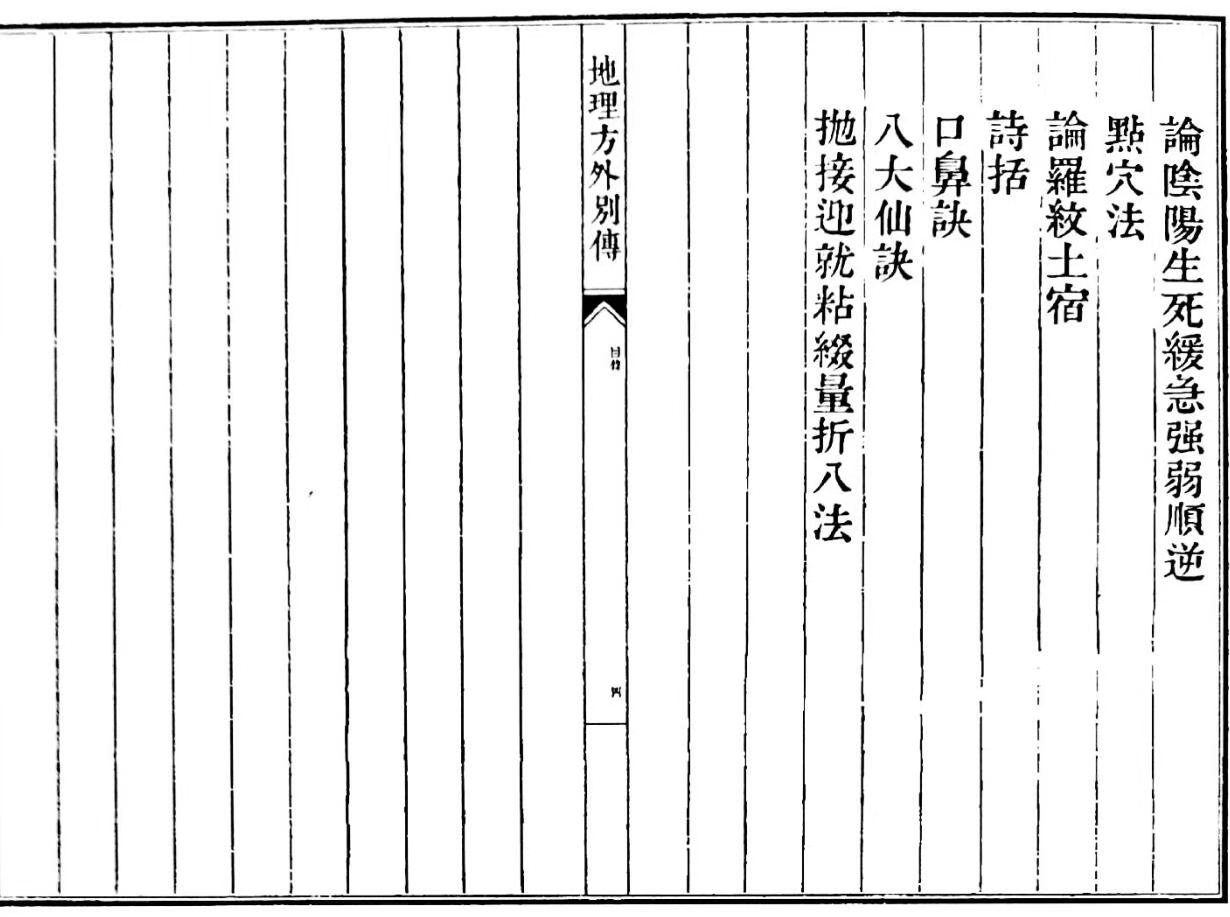 論陰陽生死緩急强弱順逆
點穴法
論羅紋土宿
詩括
口鼻訣
八大仙訣
拋接迎就粘綴量折八法
地理方外別傳
目錄
四